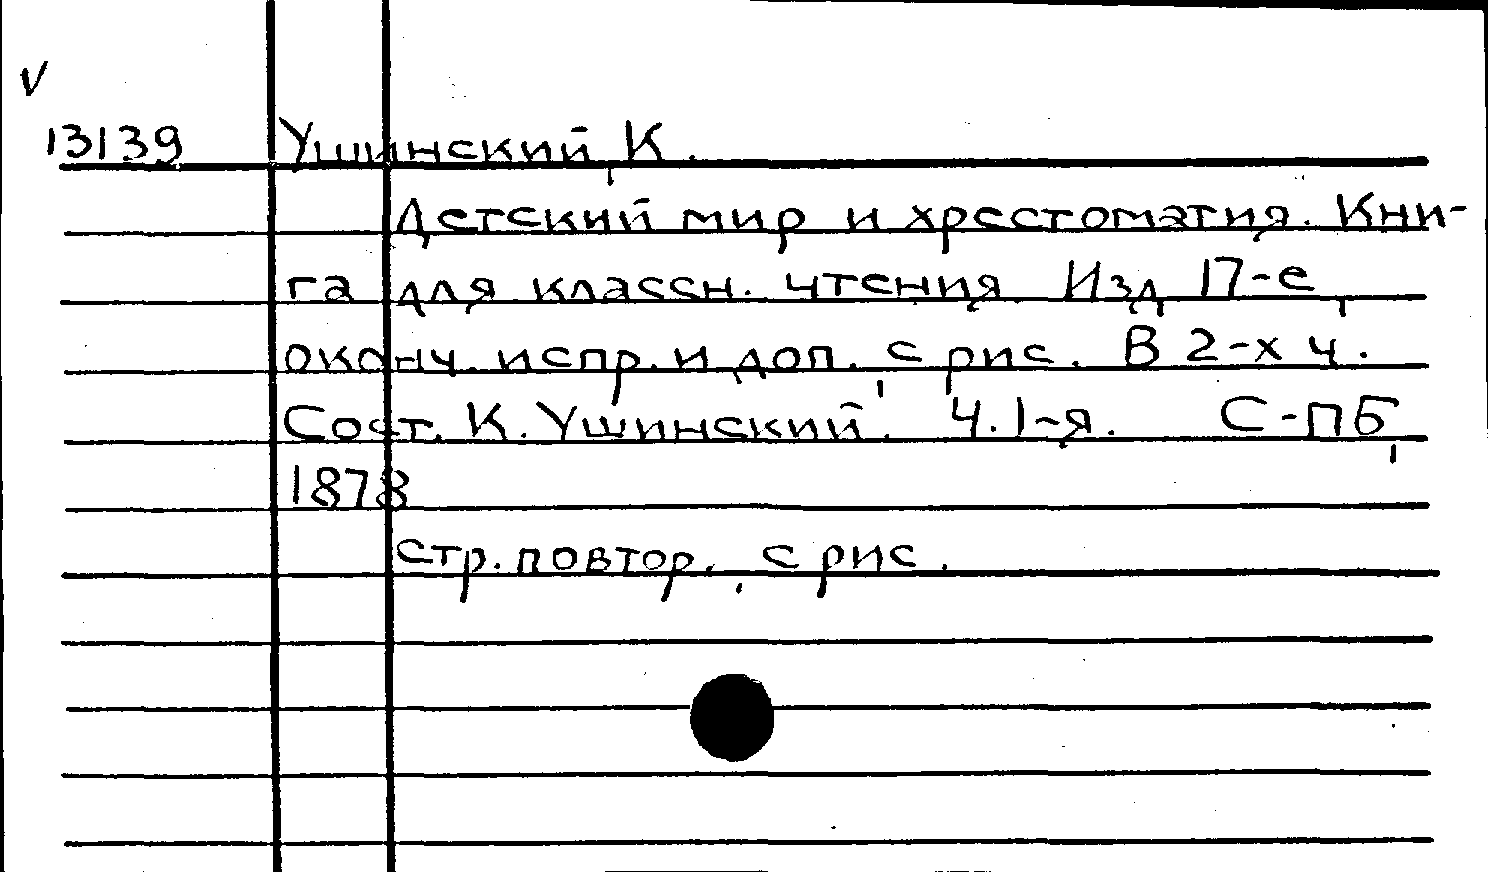 V
13139 Ушинский, К.
Детский мир и хрестоматия. Кни-
га для классн. чтения. Изд 17-е,
оконч. испр. и доп., с рис. В 2-х ч.
Сост. К. Ушинский. Ч. 1-я. С-ПБ,
1878
стр. повтор., с рис.